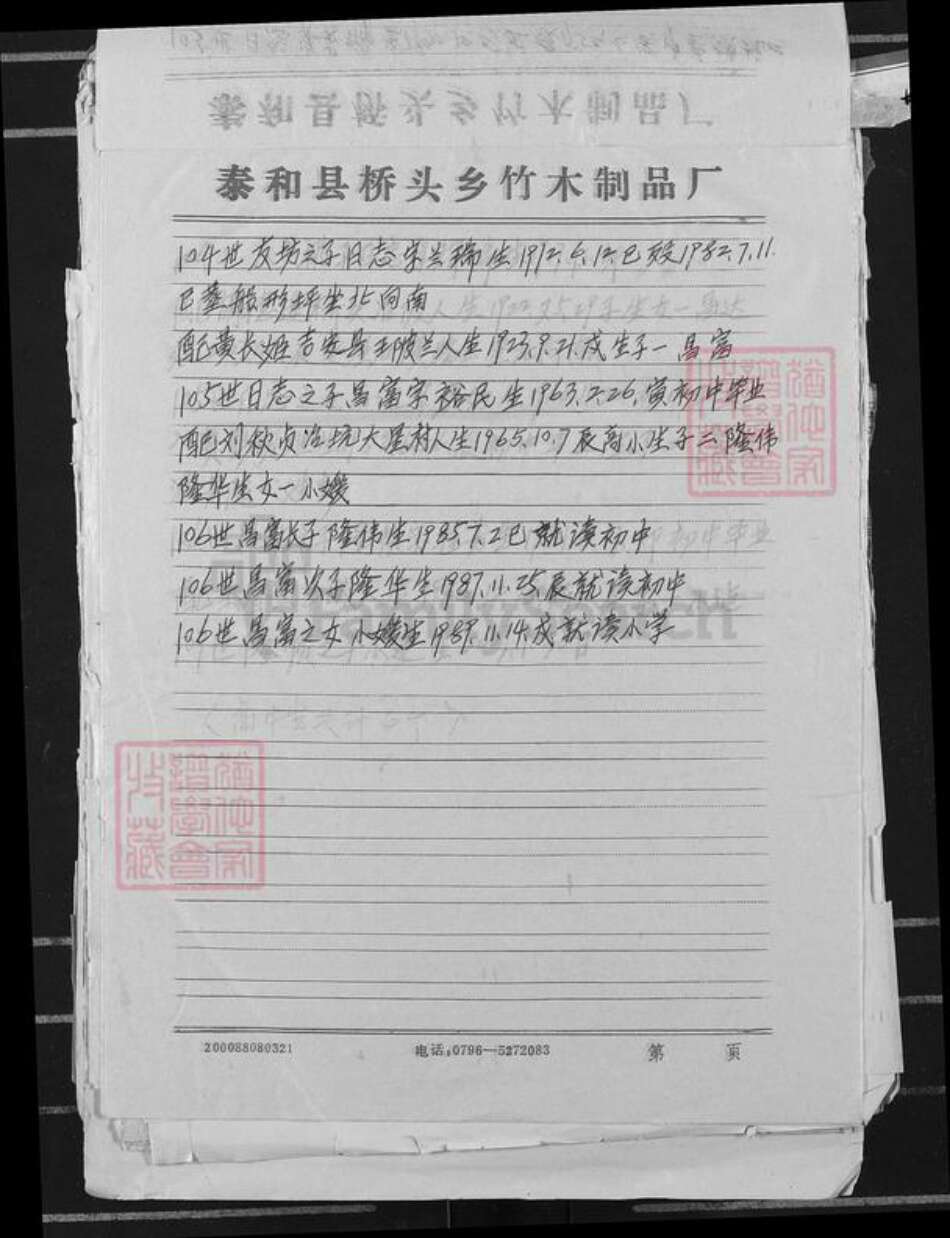 泰和县桥头乡竹木制品厂
104世茂坊之子日志字兰瑞生1912.6.12.巳殁1982.7.11.
巳葬船形坪坐北向南
配黄长姬吉安县王陂兰人生1923.9.21.戌生子一昌富
105世日志之子昌富字裕民生1963.2.26.寅初中毕业
配刘秋贞冶坑大星村人生1965.10.7辰高小生子二隆伟
隆华生女一小媛
106世昌富长子隆伟生1985.7.2巳就读初中
106世昌富次子隆华生1987.11.25.辰就读初中
106世昌富之女小媛生1989.11.14.戌就读小学
200088080321 电话:0796—5272083 第 页